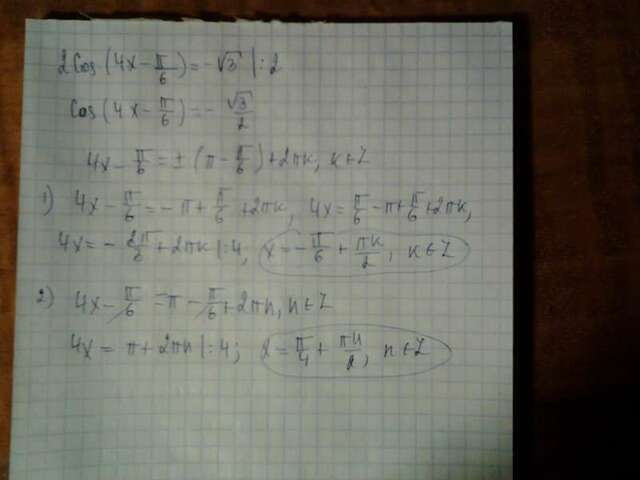 2Cos(4x-π/6)=-√3 |:2
Cos(4x-π/6)=-√3/2
4x-π/6=±(π-π/6)+2πk, k∈Z
1) 4x-π/6=-π+π/6+2πk, 4x=π/6-π+π/6+2πk,
4x=-2π/3+2πk |:4, x=-π/6+πk/2, k∈Z
2) 4x-π/6=π-π/6+2πn, n∈Z
4x=π+2πn |:4; x=π/4+πn/2, n∈Z